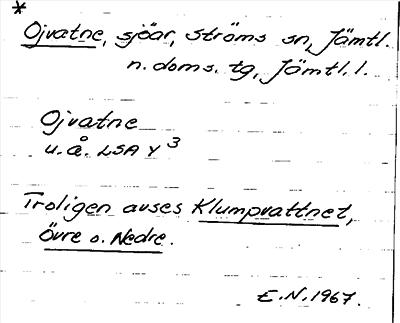 *
Ojvatne, sjöar, Ströms sn, Jämtl.
n. doms. tg, Jämtl. l.
Ojvatne
u.å. LSA Y 3
Troligen avses Klumpvattnet,
Övre o. Nedre.
E.N. 1967.